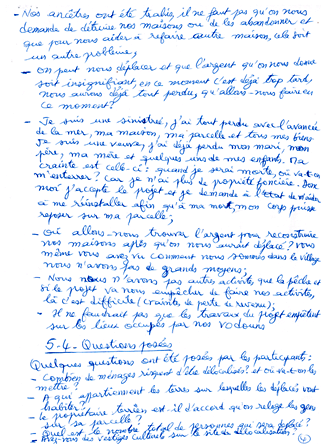 - Nos ancêtres ont été trahis, il ne faut pas qu'on nous
demande de détruire nos maisons ou de les abandonner et
que pour nous aider à refaire autre maison, cela soit
un autre problème,
- On peut nous déplacer et que l'argent qu'on nous donne
soit insignifiant, en ce moment c'est déjà trop tard
nous aurions déjà tout perdu, qu'allons-nous faire en
ce moment ?
- Je suis une sinistrée, j'ai tout perdu avec l'avancée
de la mer, ma maison, ma parcelle et tous mes biens
Je suis une veuve, j'ai déjà perdu mon mari, mon
père, ma mère et quelques uns de mes enfants. Ma
crainte est celle-ci : quand je serai morte, où va-t-on
m'enterrer ? Car je n'ai plus de propriété foncière. Donc
moi j'accepte le projet et je demande à l'Etat de m'aider
à me réinstaller afin qu'à ma mort, mon corps puisse
reposer sur ma parcelle ;
- Où allons-nous trouver l'argent pour reconstruire
nos maisons après qu'on nous aurait déplacé ? Vous
même vous avez vu comment nous sommes dans le village
nous n'avons pas de grands moyens ;
- Nous n'avons pas autres activités que la pêche et
si le projet va nous empêcher de faire nos activités,
là c'est difficile (crainte de perte de revenu) ;
- Il ne faudrait pas que les travaux du projet empiètent
sur les lieux occupés par nos vodouns
5-4- Questions posées
Quelques questions ont été posées par les participants :
- Combien de ménages risquent d'être délocalisés ? et où va-t-on les
mettre ?
- A qui appartiennent les terres sur lesquelles les déplacés vont
habiter ?
- le propriétaire terrien est-il d'accord qu'on reloge les gens
sur sa parcelle ?
- Quel est le nombre total de personnes qui sera déplacé ?
- Avez-vous des vestiges culturels sur le site de délocalisation ?